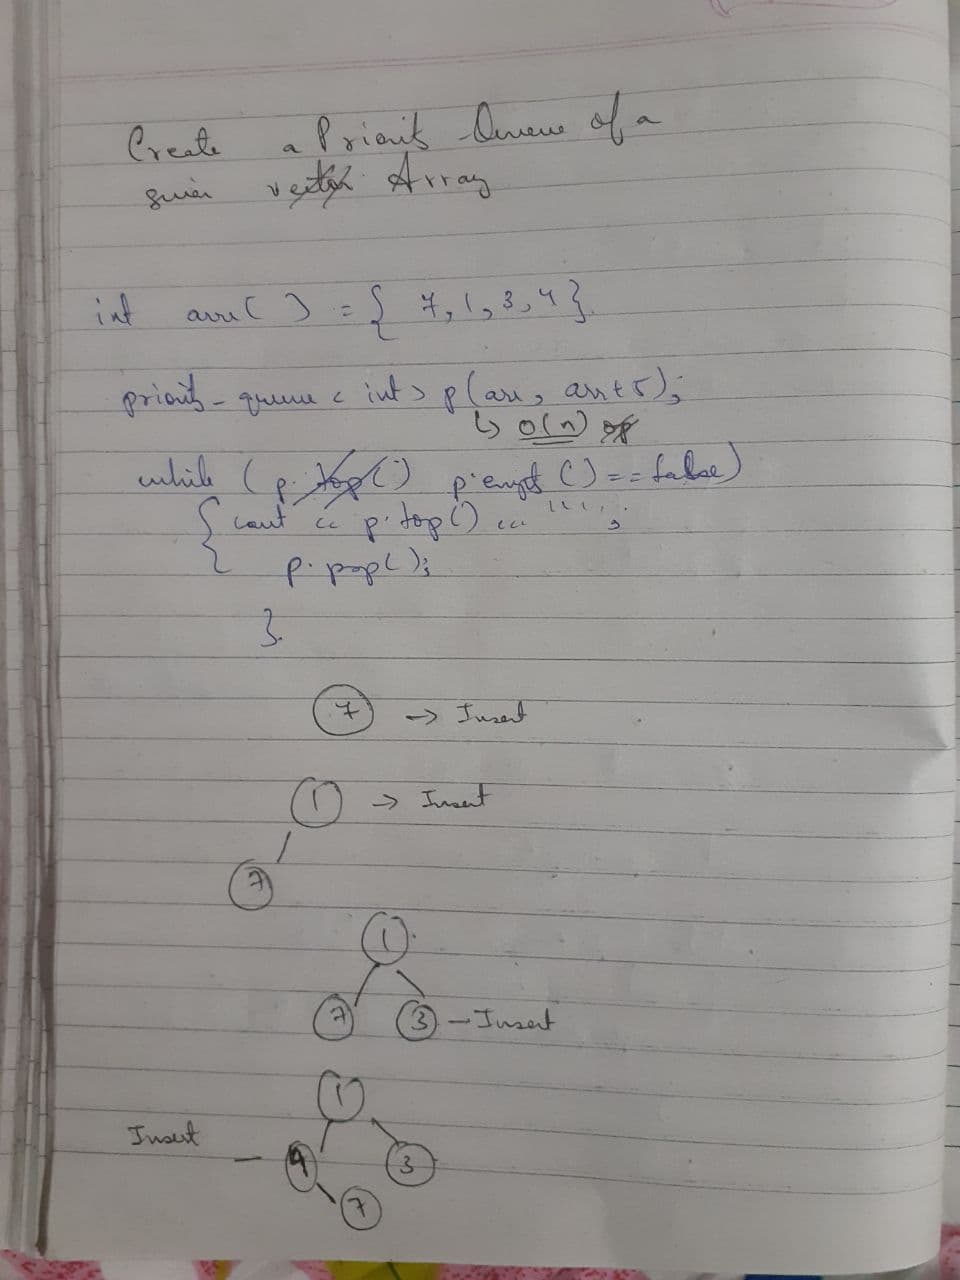 Create a Priorit Queue of a
given vector Array
int arr[ ] = { 7, 1, 3, 4 }
priorit_queue < int > p(arr, arr+5);
↳ O(n) of
while ( p.top() p.empt () == false)
{ cout << p.top() << " ";
p.pop();
}
7 → Insert
1 → Insert
7
1
7 3 - Insert
1
Insert - 4 3
7